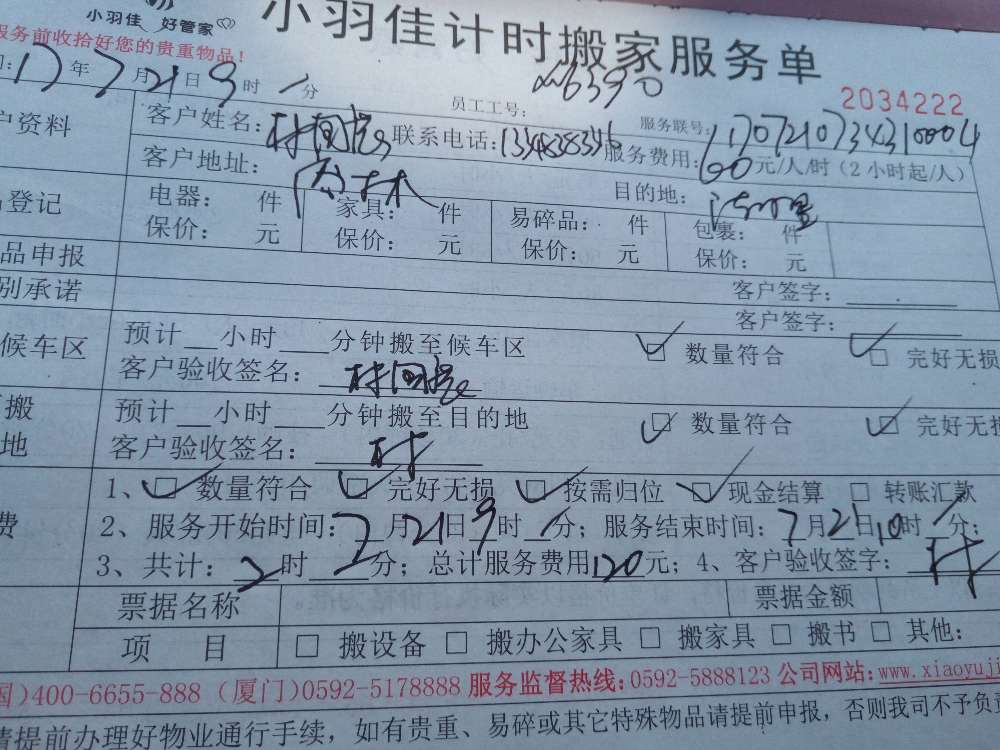 小羽佳 好管家
小羽佳计时搬家服务单
服务前收拾好您的贵重物品!
17年7月21日9时 分
员工工号:
2034222
户资料
客户姓名: 联系电话: 服务联号:
客户地址: 服务费用:60元/人/时(2小时起/人)
目的地:
登记
电器: 件 家具: 件 易碎品: 件 包裹: 件
保价: 元 保价: 元 保价: 元 保价: 元
品申报 客户签字:
别承诺 客户签字:
候车区
预计 小时 分钟搬至候车区 ☑ 数量符合 ☑ 完好无损
客户验收签名:
搬
地
预计 小时 分钟搬至目的地 ☑ 数量符合 ☑ 完好无损
客户验收签名:
费
1、☑ 数量符合 ☑ 完好无损 ☑ 按需归位 ☑ 现金结算 □ 转账汇款
2、服务开始时间:7月21日9时 分;服务结束时间:7月21日10时 分;
3、共计:2时 分;总计服务费用120元;4、客户验收签字:
票据名称 票据金额
项 目 □ 搬设备 □ 搬办公家具 □ 搬家具 □ 搬书 □ 其他:
国)400-6655-888(厦门)0592-5178888 服务监督热线:0592-5888123 公司网站:www.xiaoyuji
请提前办理好物业通行手续,如有贵重、易碎或其它特殊物品请提前申报,否则我司不予负责